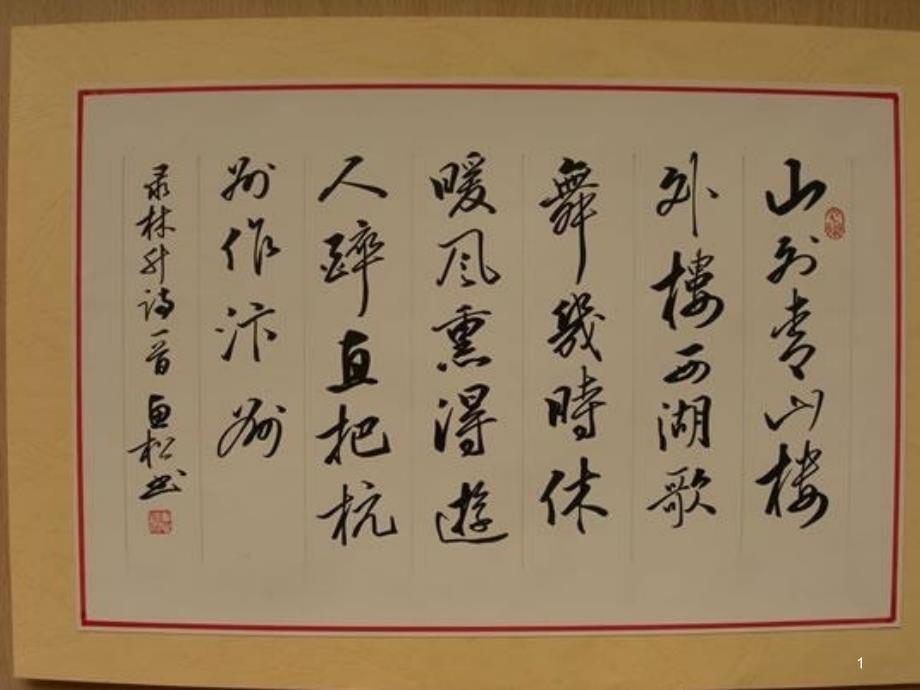 山外青山楼
外樓西湖歌
舞幾時休
暖风熏得遊
人醉直把杭
州作汴州
录林升诗一首 松书
1